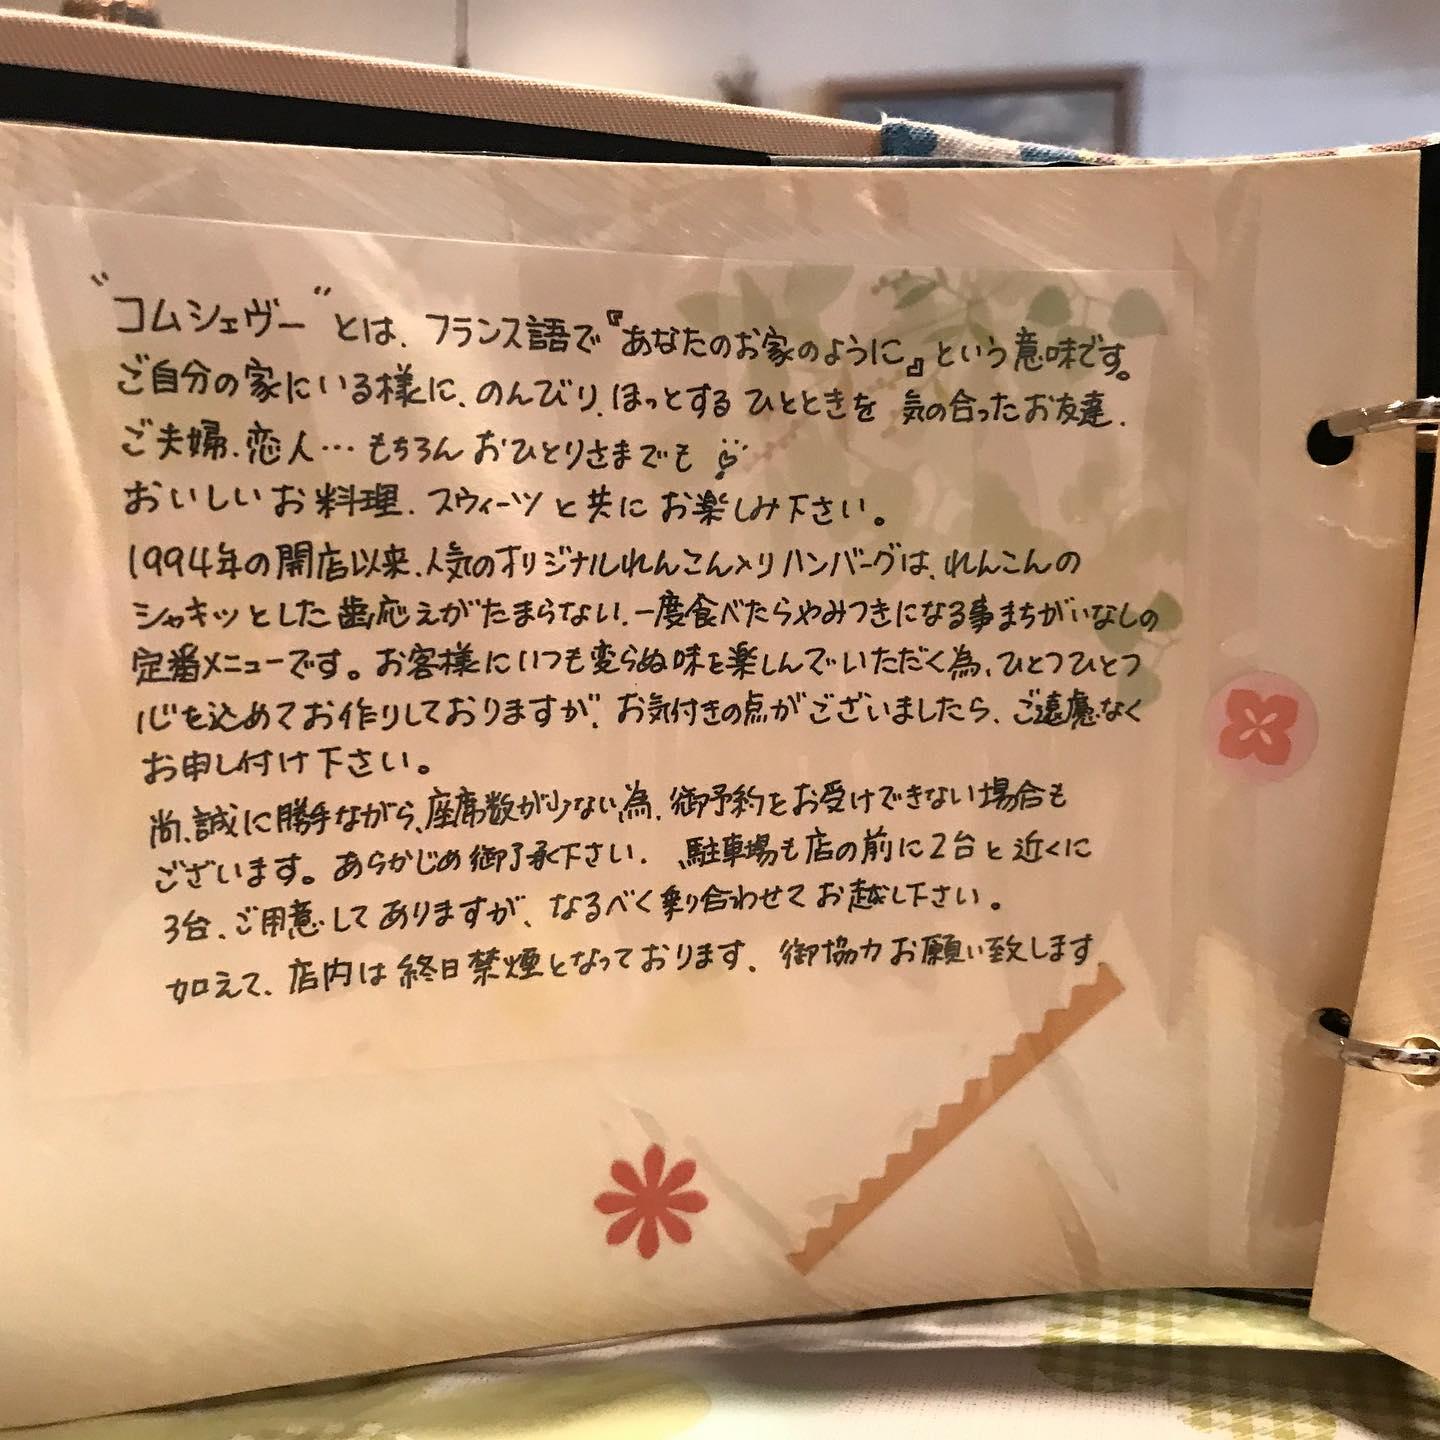 “コムシェヴー”とは、フランス語で『あなたのお家のように』という意味です。
ご自分の家にいる様に、のんびり、ほっとするひとときを 気の合ったお友達、
ご夫婦、恋人…もちろん おひとりさまでも
おいしいお料理、スウィーツと共に お楽しみ下さい。
1994年の開店以来、人気のオリジナルれんこん入りハンバーグは、れんこんの
シャキッとした歯応えがたまらない、一度食べたらやみつきになる事まちがいなしの
定番メニューです。お客様にいつも変らぬ味を楽しんでいただく為、ひとつひとつ
心を込めてお作りしておりますが、お気付きの点がございましたら、ご遠慮なく
お申し付け下さい。
尚、誠に勝手ながら、座席数が少ない為、御予約をお受けできない場合も
ございます。あらかじめ御了承下さい。駐車場も店の前に2台と近くに
3台、ご用意してありますが、なるべく乗り合わせてお越し下さい。
加えて、店内は終日禁煙となっております、御協力お願い致します